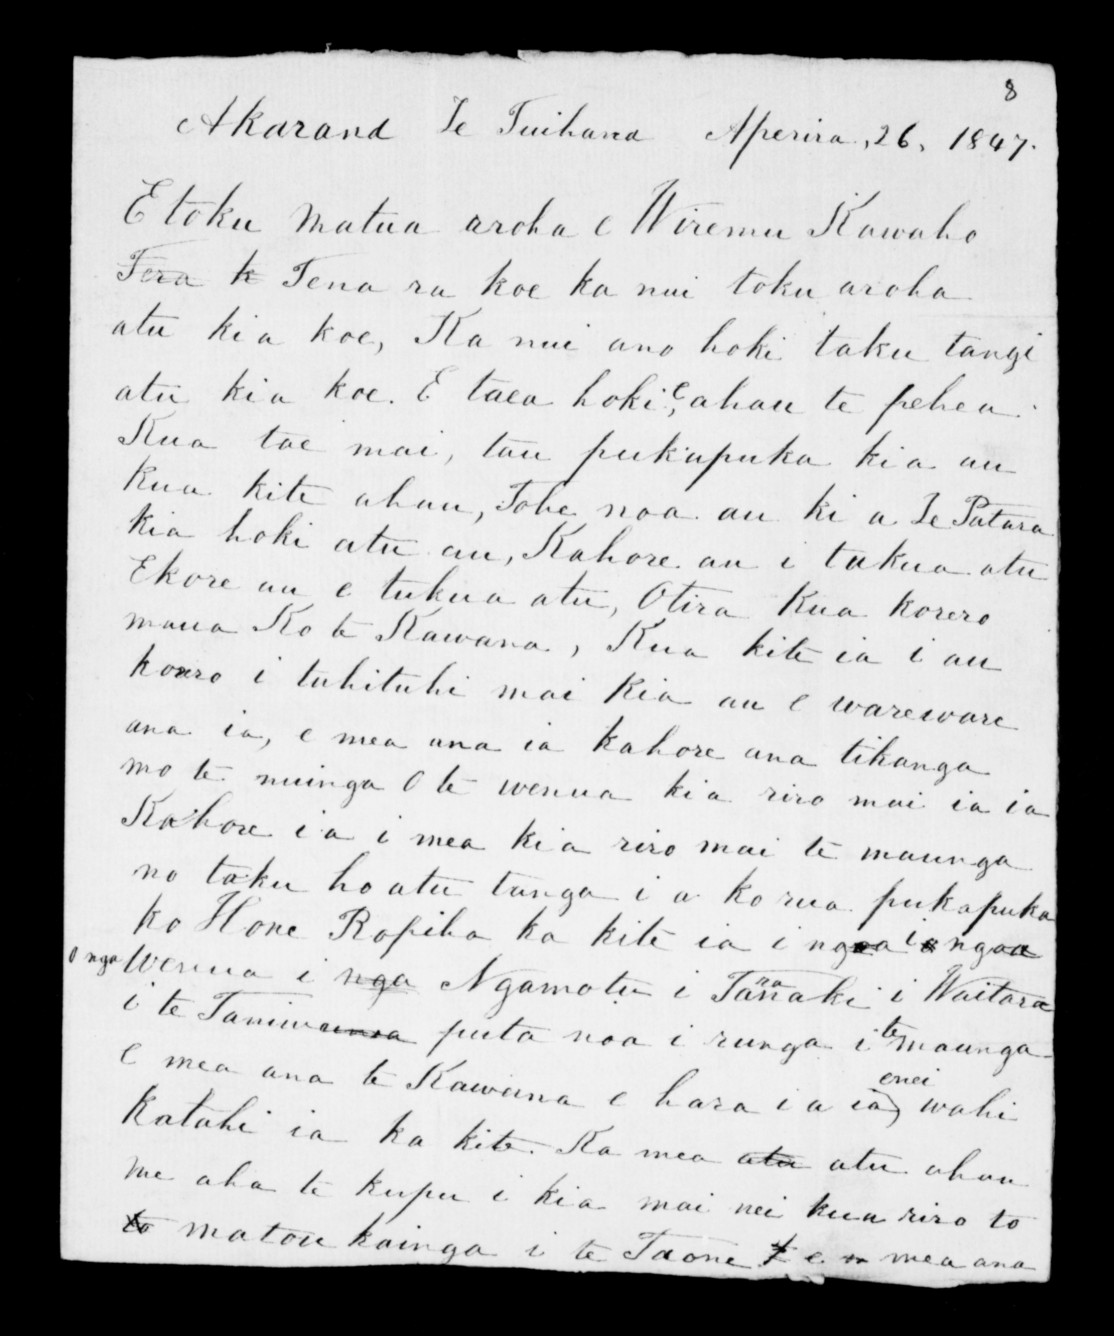 8
Akarand Te Tuihana Aperira, 26, 1847.
E toku Matua aroha e Wiremu Kawaho
Tera k Tena ra koe ka nui toku aroha
atu ki a koe, Ka nui ano hoki taku tangi
atu kia koe. E taea hoki e, ahau te pehea.
Kua tae mai, tau pukapuka kia au
kua kite ahau, Tohe noa au ki a Te Patara
kia hoki atu au, Kahore au i tukua atu
Ekore au e tukua atu, Otira Kua korero
maua Ko te Kawana, Kua kite ia i au
korero i tuhituhi mai kia au e wareware
ana ia, e mea ana ia kahore ana tikanga
mo te nuinga O te wenua kia riro mai ia ia
Kahore ia i mea kia riro mai te maunga
no taku ho atu tanga i a ko rua pukapuka
ko Hone Ropiha ka kite ia i ngaa i ngaa
O nga Wenua i nga Ngamotu i Taranaki i Waitara
i te Taniwa puta noa i runga i te maunga
e mea ana te Kawana e hara i a ia enei wahi
Katahi ia ka kite. Ka mea atu atu ahau
me aha te kupu i kia mai nei kua riro to
to matou kainga i te Taone t e n mea ana